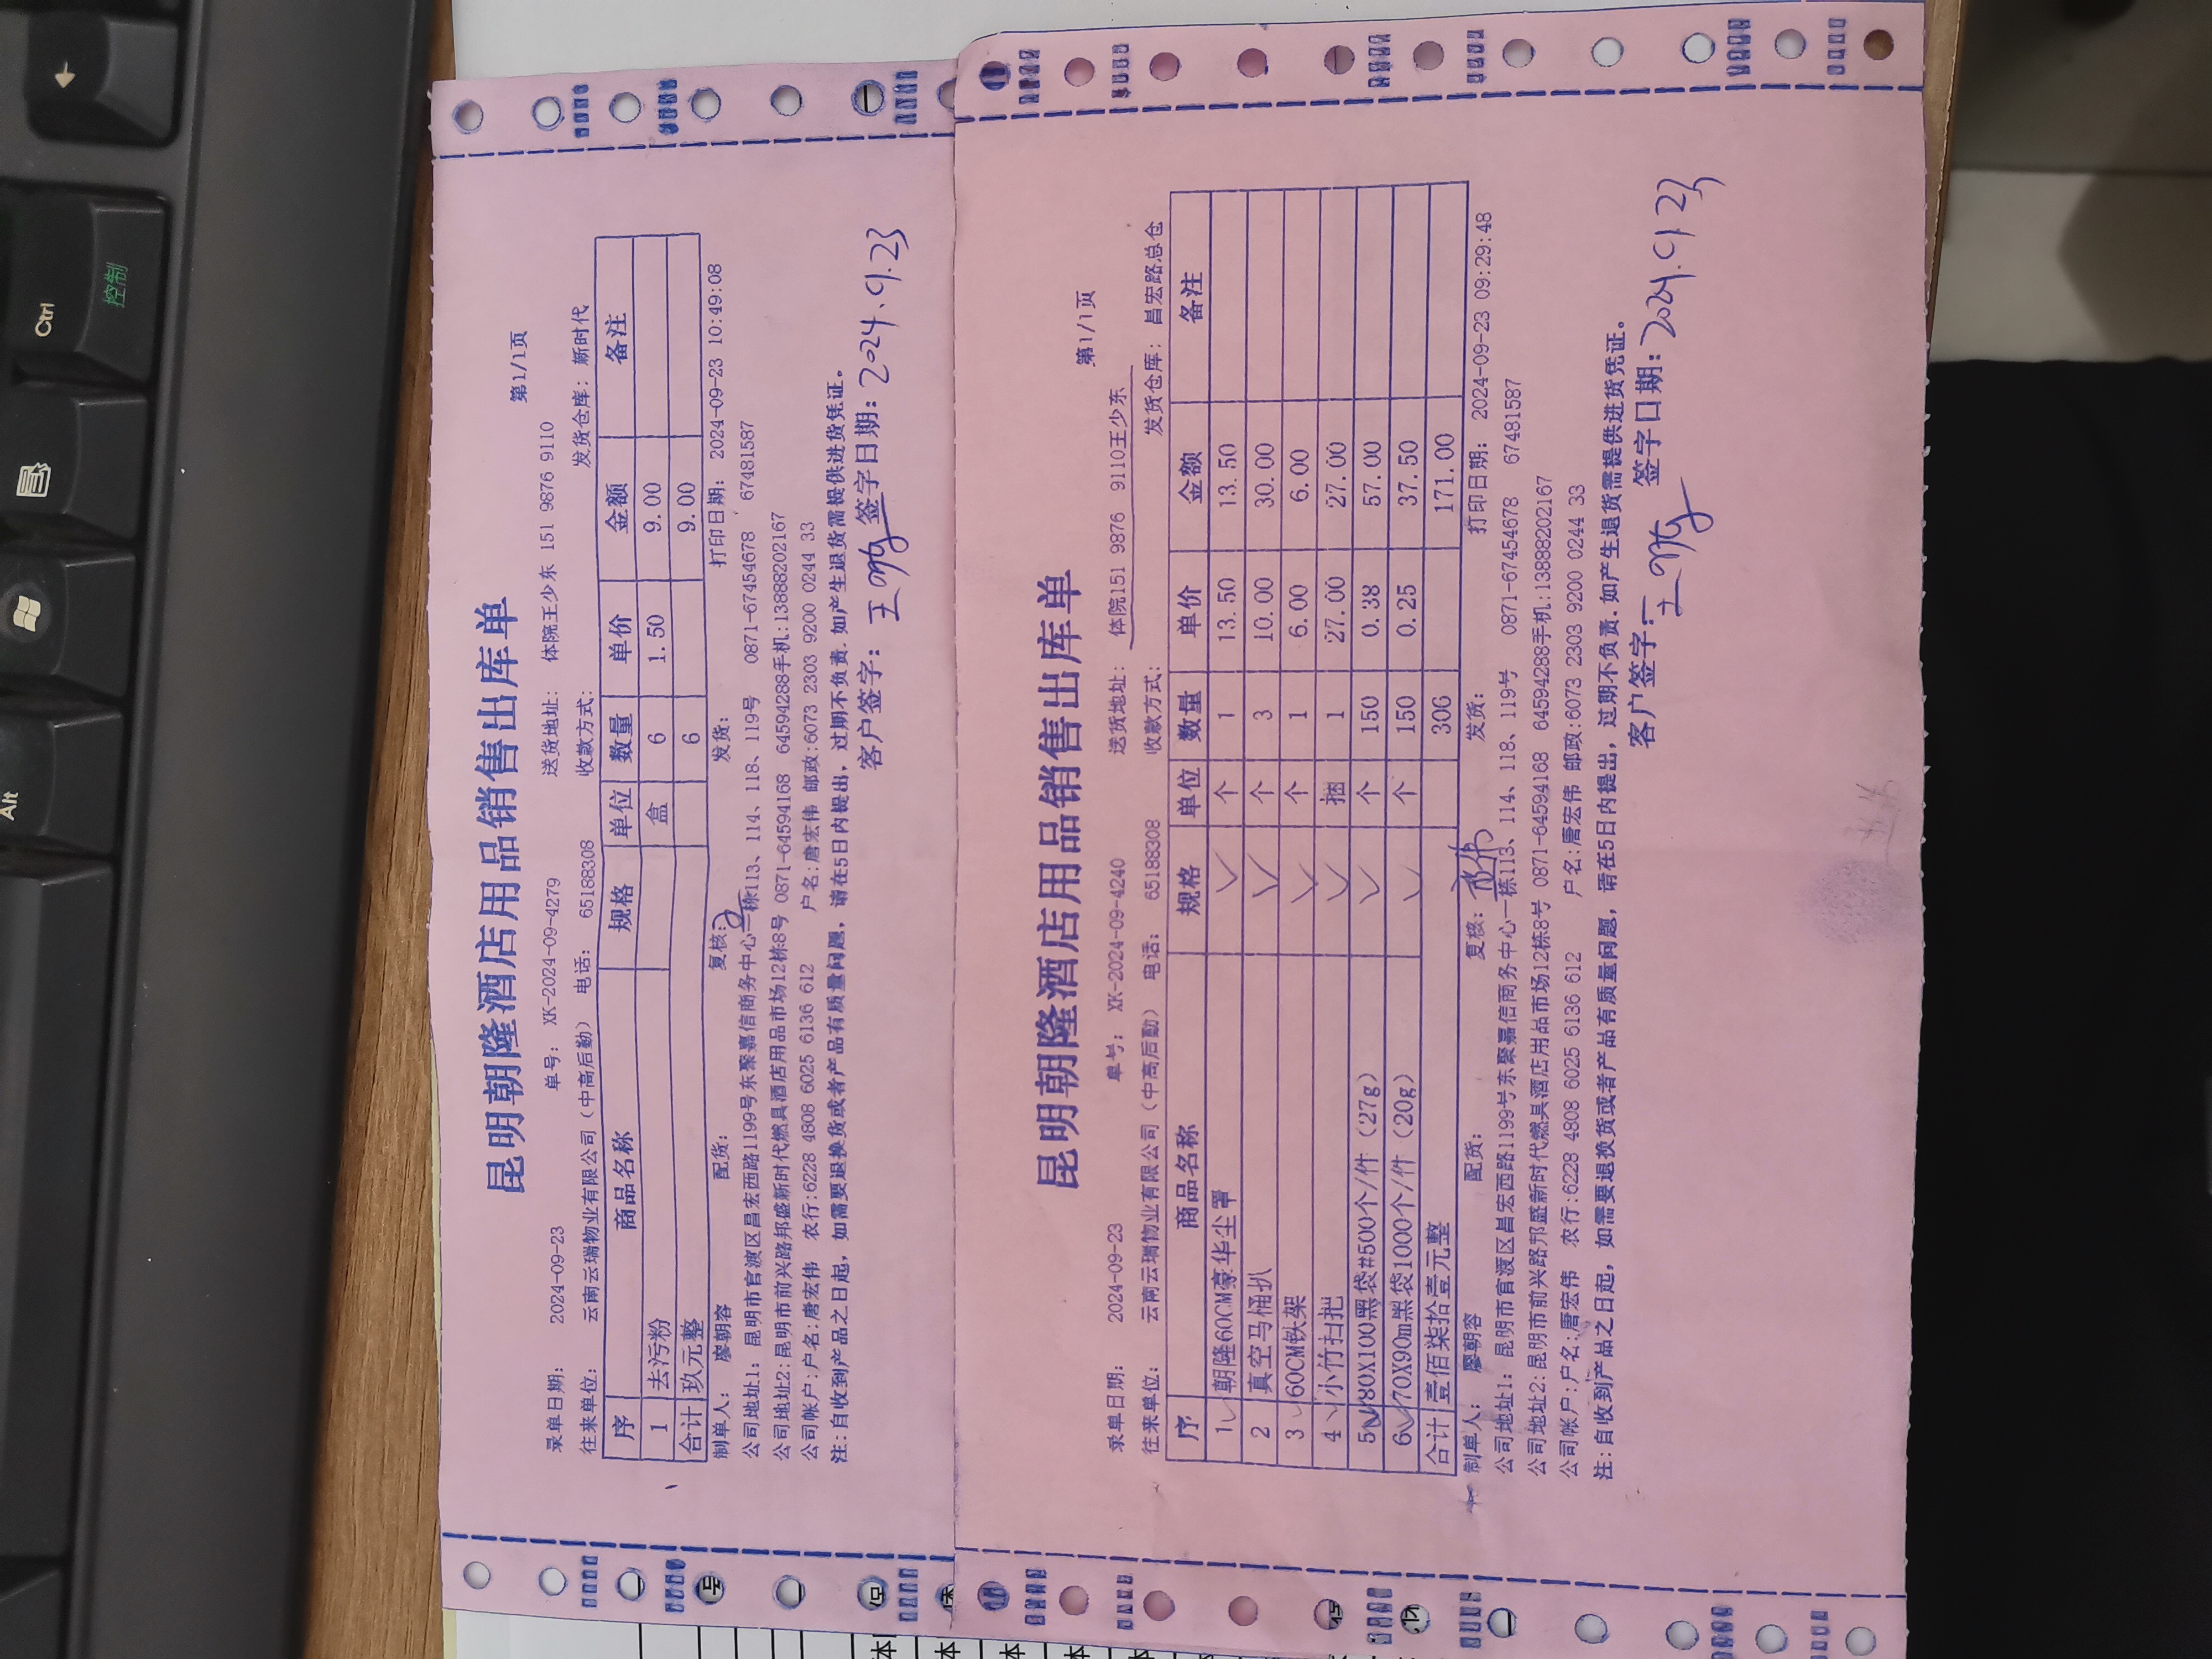 昆明朝隆酒店用品销售出库单
第1/1页
录单日期： 2024-09-23 单号： XK-2024-09-4279 送货地址： 体院王少东 151 9876 9110
往来单位： 云南云瑞物业有限公司（中高后勤） 电话： 65188308 收款方式： 发货仓库：新时代
序 商品名称 规格 单位 数量 单价 金额 备注
1 去污粉 盒 6 1.50 9.00
合计 玖元整 6 9.00
制单人： 廖朝容 配货： 复核： 发货： 打印日期： 2024-09-23 10:49:08
公司地址1： 昆明市官渡区昌宏西路1199号东聚嘉信商务中心一栋113、114、118、119号 0871-67454678 67481587
公司地址2:昆明市前兴路邦盛新时代燃具酒店用品市场12栋8号 0871-64594168 64594288手机:13888202167
公司帐户:户名:唐宏伟 农行:6228 4808 6025 6136 612 户名:唐宏伟 邮政:6073 2303 9200 0244 33
注:自收到产品之日起，如需要退换货或者产品有质量问题，请在5日内提出，过期不负责.如产生退货需提供进货凭证。
客户签字： 签字日期：2024.9.23
昆明朝隆酒店用品销售出库单
第1/1页
录单日期： 2024-09-23 单号： XK-2024-09-4240 送货地址： 体院151 9876 9110王少东
往来单位： 云南云瑞物业有限公司（中高后勤） 电话： 65188308 收款方式： 发货仓库：昌宏路总仓
序 商品名称 规格 单位 数量 单价 金额 备注
1 朝隆60CM豪华尘罩 个 1 13.50 13.50
2 真空马桶扒 个 3 10.00 30.00
3 60CM铁架 个 1 6.00 6.00
4 小竹扫把 捆 1 27.00 27.00
5 80X100黑袋#500个/件（27g） 个 150 0.38 57.00
6 70X90m黑袋1000个/件（20g） 个 150 0.25 37.50
合计 壹佰柒拾壹元整 306 171.00
制单人： 廖朝容 配货： 复核： 发货： 打印日期： 2024-09-23 09:29:48
公司地址1： 昆明市官渡区昌宏西路1199号东聚嘉信商务中心一栋113、114、118、119号 0871-67454678 67481587
公司地址2:昆明市前兴路邦盛新时代燃具酒店用品市场12栋8号 0871-64594168 64594288手机:13888202167
公司帐户:户名:唐宏伟 农行:6228 4808 6025 6136 612 户名:唐宏伟 邮政:6073 2303 9200 0244 33
注:自收到产品之日起，如需要退换货或者产品有质量问题，请在5日内提出，过期不负责.如产生退货需提供进货凭证。
客户签字： 签字日期：2024.9.23
Alt
Ctrl
控制